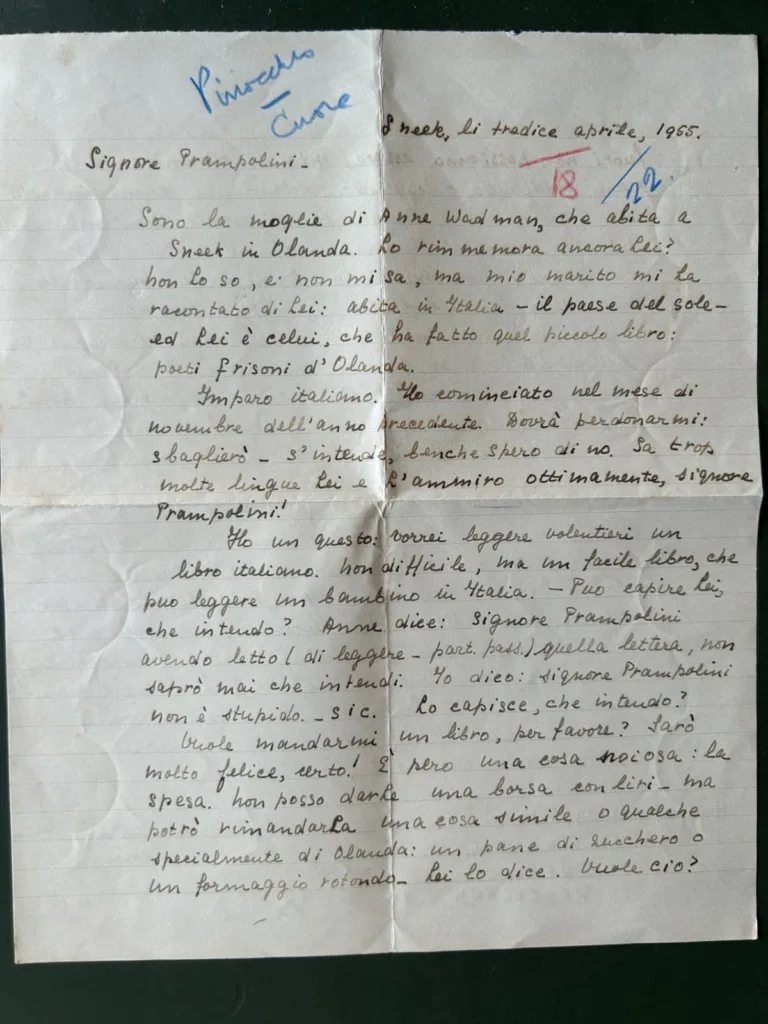 Pinocchio
—
Cuore
Sneek, li tredice aprile, 1955.
18
22.
Signore Prampolini -
Sono la moglie di Anne Wadman, che abita a
Sneek in Olanda. Lo rimmemora ancora Lei?
Non lo so, e non mi sa, ma mio marito mi ha
racontato di Lei: abita in Italia - il paese del sole -
ed Lei è celui, che ha fatto quel piccolo libro:
poeti frisoni d'Olanda.
Imparo italiano. Ho cominciato nel mese di
novembre dell'anno precedente. Dovrà perdonarmi:
sbaglierò - s'intende, benche spero di no. Sa trop
molte lingue Lei e L'ammiro ottimamente, signore
Prampolini!
Ho un questo: vorrei leggere volentieri un
libro italiano. Non difficile, ma un facile libro, che
puo leggere un bambino in Italia. - Puo capire Lei,
che intendo? Anne dice: Signore Prampolini
avendo letto (di leggere - part. pass.) quella lettera, non
saprò mai che intendi. Yo dico: signore Prampolini
non è stupido. - sic. Lo capisce, che intendo?
Vuole mandarmi un libro, per favore? Sarò
molto felice, certo! È pero una cosa noiosa: la
spesa. Non posso darLe una borsa con liri - ma
potrò rimandarLa una cosa simile o qualche
specialmente di Olanda: un pane di zucchero o
un formaggio rotondo - Lei lo dice. Vuole cio?